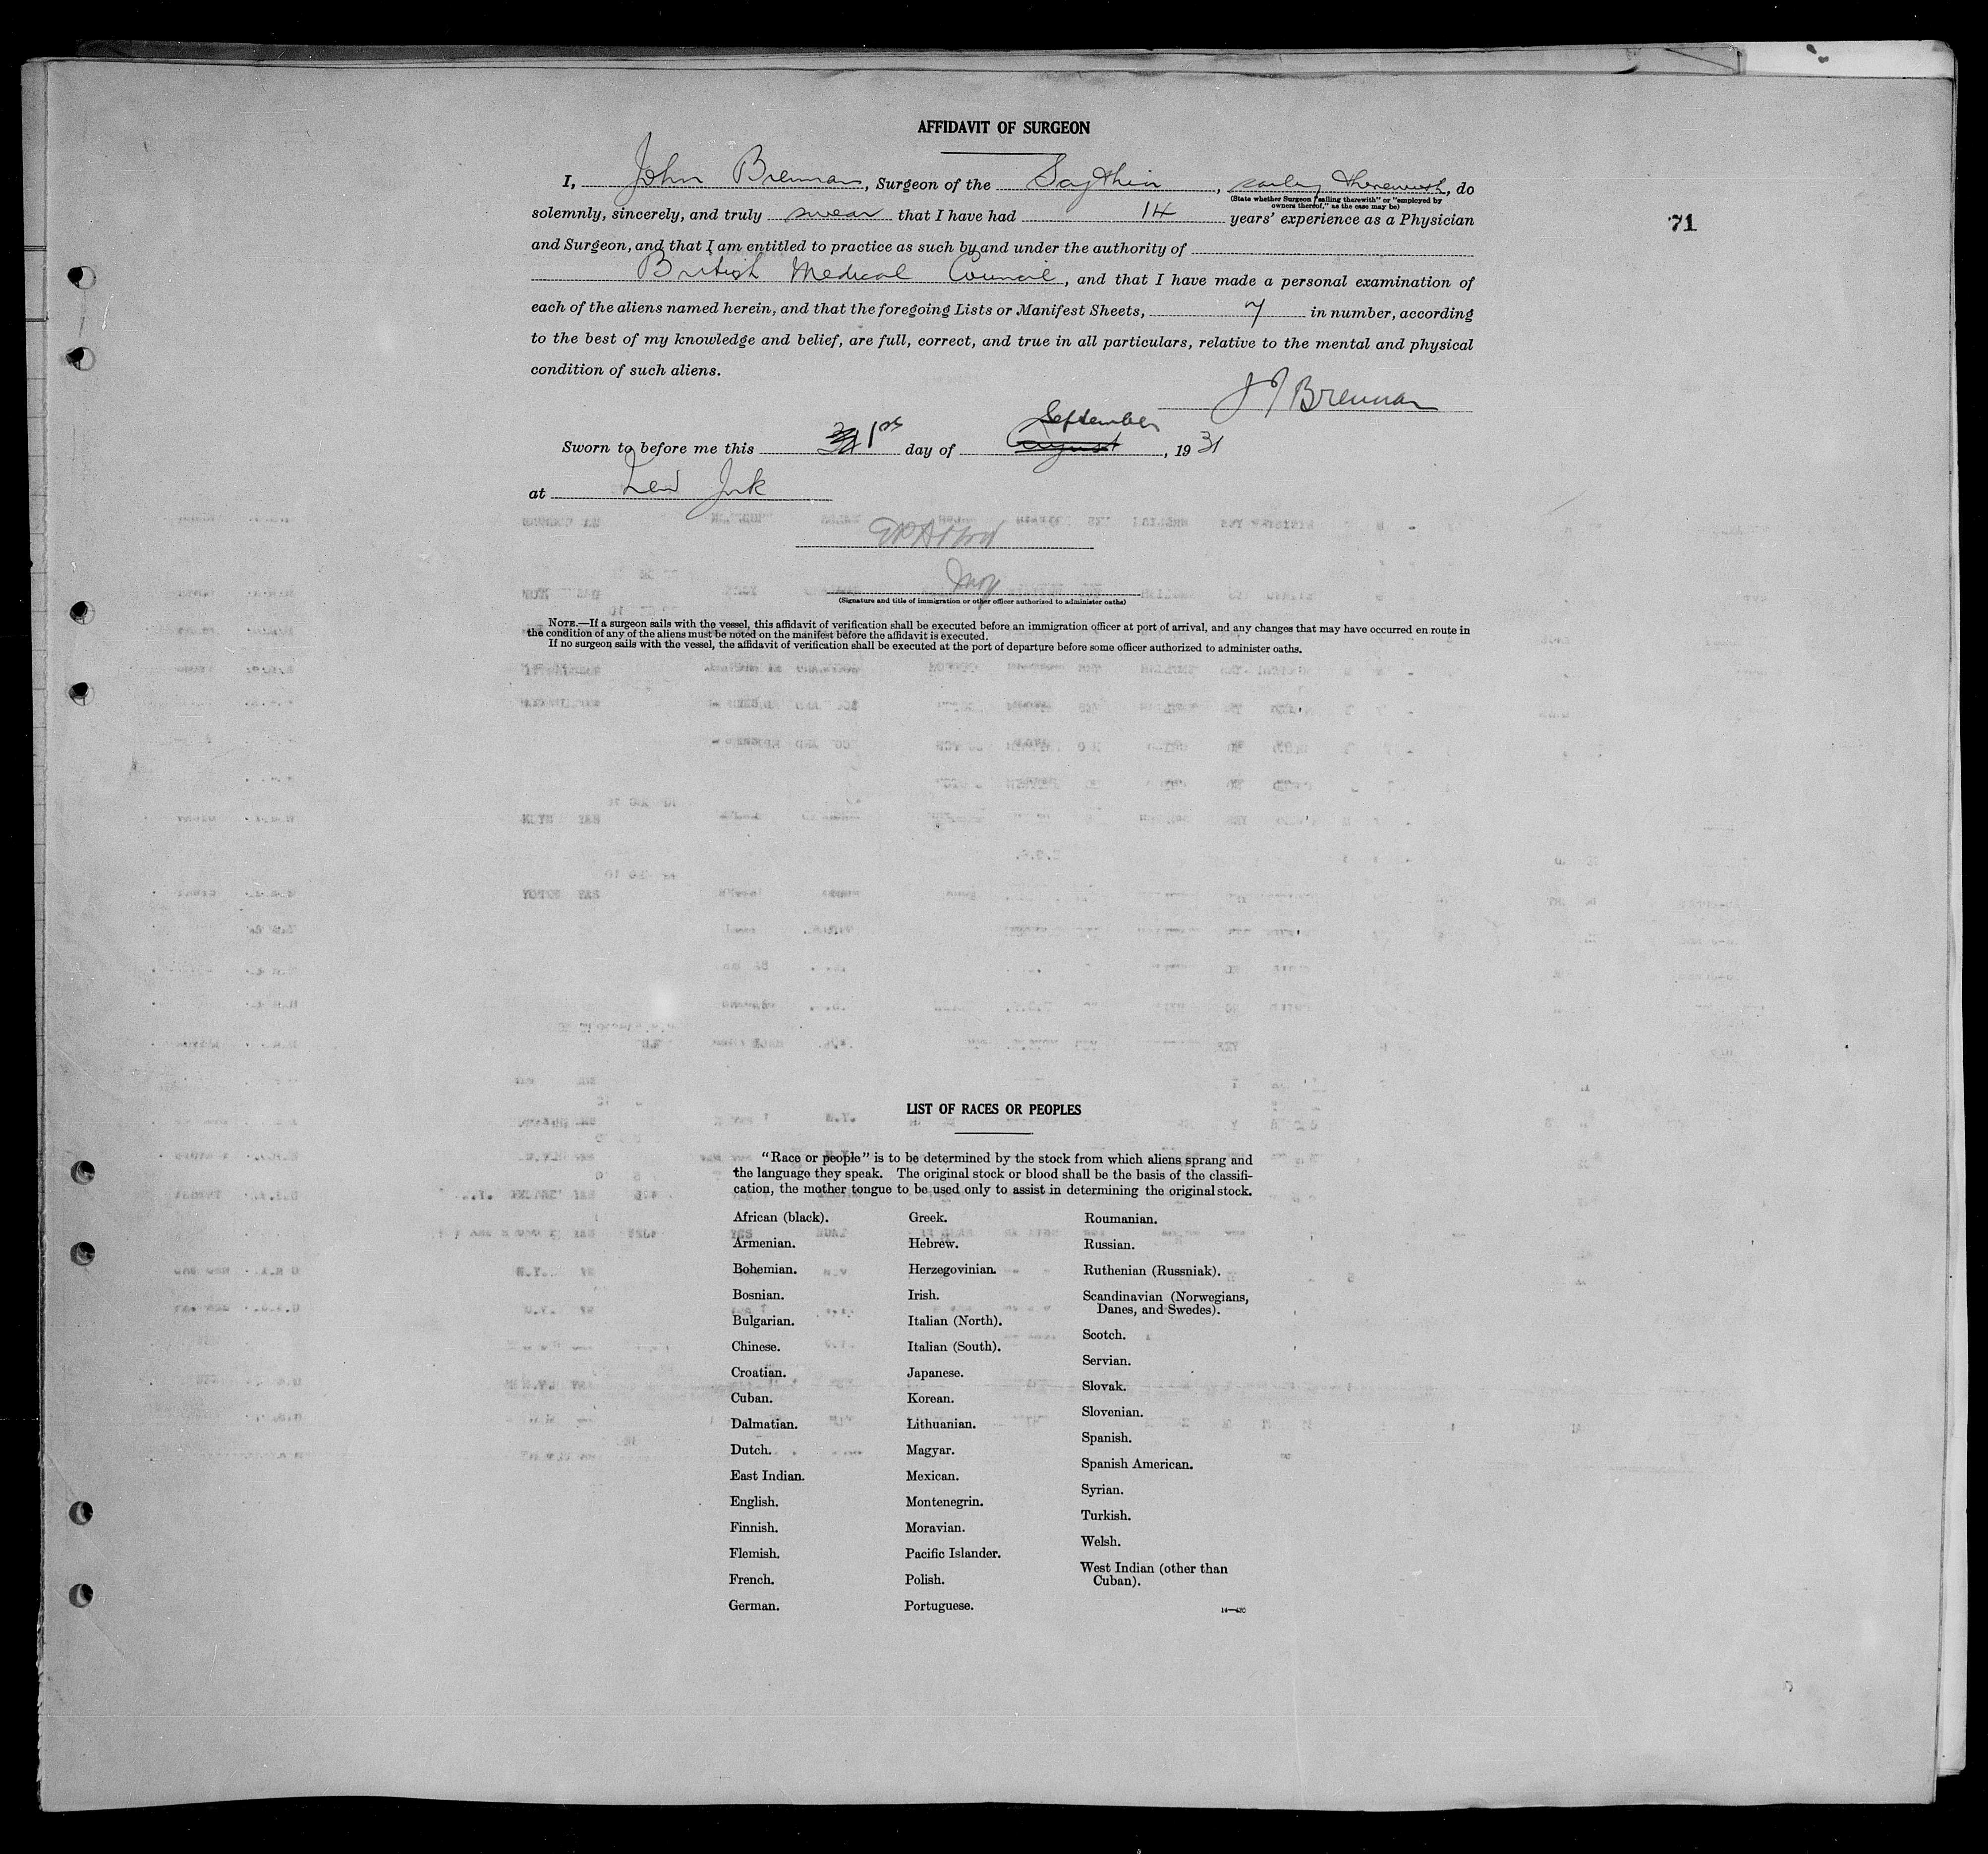 AFFIDAVIT OF SURGEON
I, John Brennan, Surgeon of the Scythia, sailing therewith, do
(State whether Surgeon "sailing therewith" or "employed by
owners thereof," as the case may be)
solemnly, sincerely, and truly swear that I have had 14 years' experience as a Physician
71
and Surgeon, and that I am entitled to practice as such by and under the authority of
British Medical Council, and that I have made a personal examination of
each of the aliens named herein, and that the foregoing Lists or Manifest Sheets, 7 in number, according
to the best of my knowledge and belief, are full, correct, and true in all particulars, relative to the mental and physical
condition of such aliens.
J J Brennan
September
Sworn to before me this 31 1st day of August, 1931
at New York
(Signature and title of immigration or other officer authorized to administer oaths)
NOTE.—If a surgeon sails with the vessel, this affidavit of verification shall be executed before an immigration officer at port of arrival, and any changes that may have occurred en route in
the condition of any of the aliens must be noted on the manifest before the affidavit is executed.
If no surgeon sails with the vessel, the affidavit of verification shall be executed at the port of departure before some officer authorized to administer oaths.
LIST OF RACES OR PEOPLES
"Race or people" is to be determined by the stock from which aliens sprang and
the language they speak. The original stock or blood shall be the basis of the classifi-
cation, the mother tongue to be used only to assist in determining the original stock.
African (black).
Armenian.
Bohemian.
Bosnian.
Bulgarian.
Chinese.
Croatian.
Cuban.
Dalmatian.
Dutch.
East Indian.
English.
Finnish.
Flemish.
French.
German.
Greek.
Hebrew.
Herzegovinian.
Irish.
Italian (North).
Italian (South).
Japanese.
Korean.
Lithuanian.
Magyar.
Mexican.
Montenegrin.
Moravian.
Pacific Islander.
Polish.
Portuguese.
Roumanian.
Russian.
Ruthenian (Russniak).
Scandinavian (Norwegians,
Danes, and Swedes).
Scotch.
Servian.
Slovak.
Slovenian.
Spanish.
Spanish American.
Syrian.
Turkish.
Welsh.
West Indian (other than
Cuban).